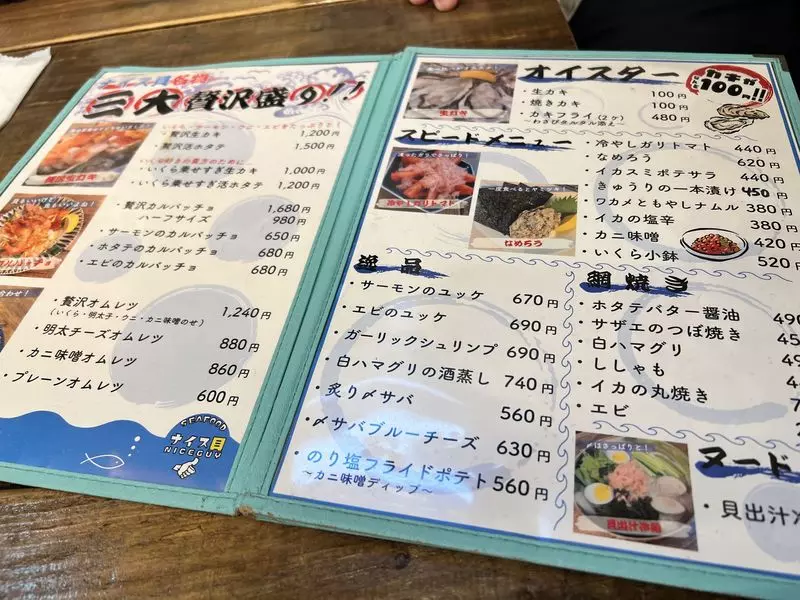 ナイス貝名物
三大贅沢盛り!!
いくら・サーモン・ウニ・エビをたっぷりと!
・贅沢生カキ 1,200円
・贅沢活ホタテ 1,500円
いくら好きの貴方のために
・いくら乗せすぎ生カキ 1,000円
・いくら乗せすぎ活ホタテ 1,200円
贅沢生カキ
・贅沢カルパッチョ 1,680円
ハーフサイズ 980円
・サーモンのカルパッチョ 650円
・ホタテのカルパッチョ 680円
・エビのカルパッチョ 680円
・贅沢オムレツ 1,240円
(いくら・明太子・ウニ・カニ味噌のせ)
・明太チーズオムレツ 880円
・カニ味噌オムレツ 860円
・プレーンオムレツ 600円
SEAFOOD
ナイス貝
NICEGUY
オイスター
カキが
100円!!
生カキ
・生カキ 100円
・焼きカキ 100円
・カキフライ(2ヶ) 480円
〜わさびタルタル添え〜
スピードメニュー
冷やしガリトマト
一度食べるとヤミツキ!
なめろう
・冷やしガリトマト 440円
・なめろう 620円
・イカスミポテサラ 440円
・きゅうりの一本漬け 450円
・ワカメともやしナムル 380円
・イカの塩辛 380円
・カニ味噌 420円
・いくら小鉢 520円
逸品
・サーモンのユッケ 670円
・エビのユッケ 690円
・ガーリックシュリンプ 690円
・白ハマグリの酒蒸し 740円
・炙り〆サバ 560円
・〆サバブルーチーズ 630円
・のり塩フライドポテト 560円
〜カニ味噌ディップ〜
網焼き
・ホタテバター醤油 490
・サザエのつぼ焼き 45
・白ハマグリ 49
・ししゃも 4
・イカの丸焼き 7
・エビ
〆はさっぱりと!
貝出汁冷麺
ヌード
・貝出汁冷